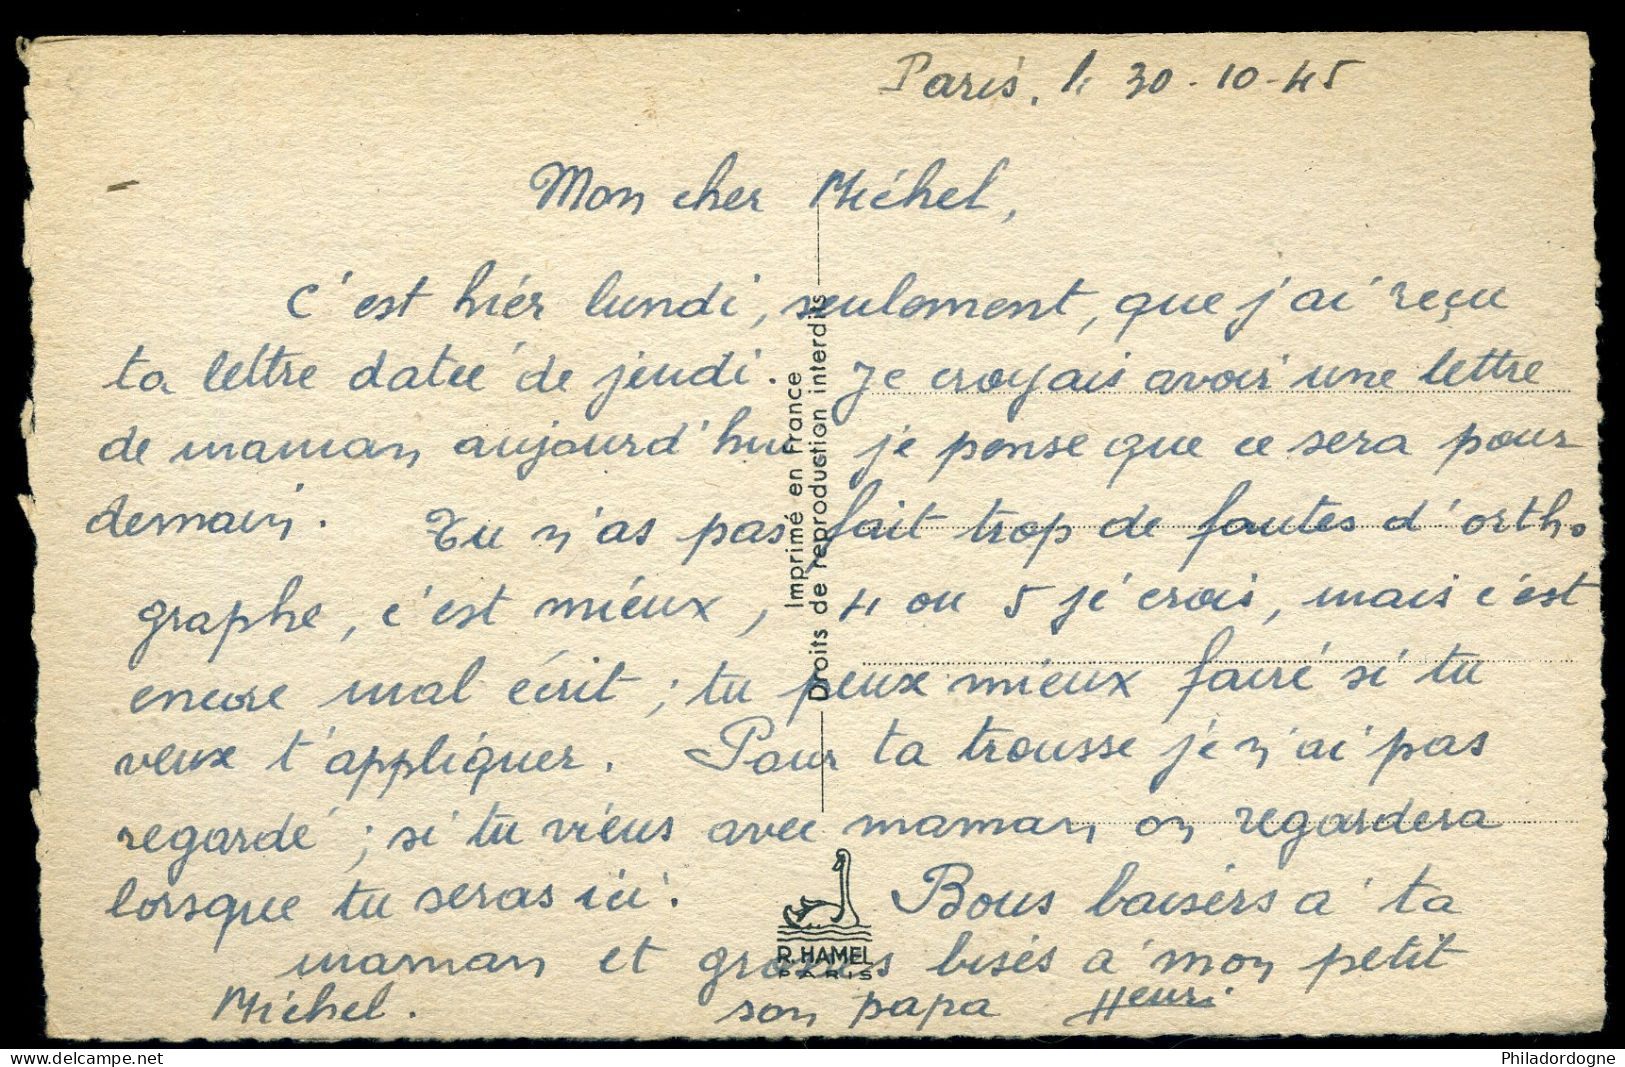 Paris, le 30-10-45
Mon cher Michel,
C'est hier lundi, seulement, que j'ai reçu
ta lettre datée de jeudi. Je croyais avoir une lettre
de maman aujourd'hui je pense que ce sera pour
demain. Tu n'as pas fait trop de fautes d'ortho
graphe, c'est mieux, 4 ou 5 je crois, mais c'est
encore mal écrit ; tu peux mieux faire si tu
veux t'appliquer. Pour ta trousse je n'ai pas
regardé ; si tu viens avec maman on regardera
lorsque tu seras ici. Bons baisers à ta
maman et grosses bises à mon petit
Michel. son papa Henri
Imprimé en France
Droits de reproduction interdits
R. HAMEL
PARIS
Philadordogne